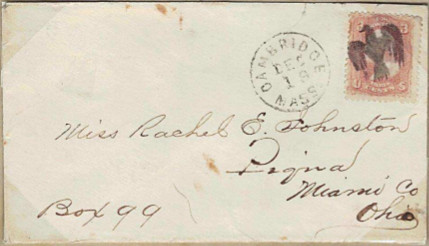 CAMBRIDGE
DEC
18
MASS.
Miss Rachel E. Johnston
Piqua
Miami Co
Ohio
Box 99